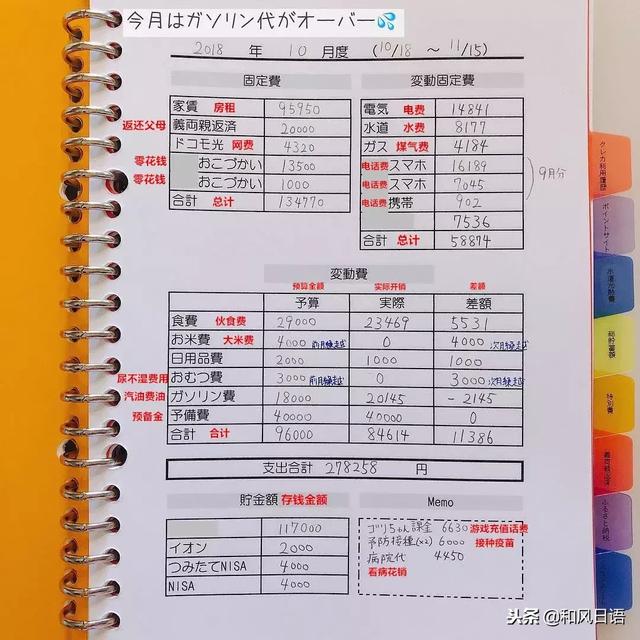 今月はガソリン代がオーバー💦
2018 年 10 月度 (10/18 ～ 11/15)
固定費
家賃 房租 95950
返还父母 義両親返済 20000
ドコモ光 网费 4320
零花钱 おこづかい 13500
零花钱 おこづかい 1000
合計 总计 134770
変動固定費
電気 电费 14841
水道 水费 8177
ガス 煤气费 4184
电话费 スマホ 16189
电话费 スマホ 7045
电话费 携帯 902
7536
合計 总计 58874
9月分
変動費
预算金额 实际开销 差额
予算 実際 差額
食費 伙食费 29000 23469 5531
お米費 大米费 4000 前月繰越 0 4000 次月繰越
日用品費 2000 1000 1000
尿不湿费用 おむつ費 3000 前月繰越 0 3000 次月繰越
汽油费油 ガソリン費 18000 20145 -2145
预备金 予備費 40000 40000 0
合計 合计 96000 84614 11386
支出合計 278258 円
貯金額 存钱金额
117000
イオン 2000
つみたてNISA 4000
NISA 4000
Memo
ゴリちゃん課金 6630 游戏充值话费
予防接種(×2) 6000 接种疫苗
病院代 4450
看病花销
クレカ利用履歴
ポイントサイト
水道光熱費
総貯蓄額
特別費
義両親返済
ふるさと納税
头条 @和风日语